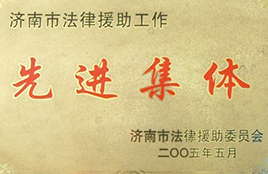 济南市法律援助工作
先进集体
济南市法律援助委员会
二〇〇五年五月